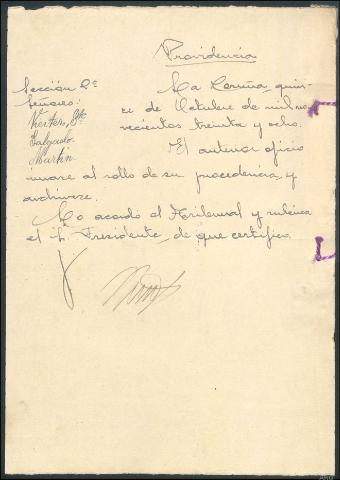 Providencia
Sección 2ª
Señores:
Salgado
Martin
La Coruña quin-
ce de Octubre de mil no-
vecientos treinta y ocho.
El anterior oficio
unase al rollo de su procedencia, y
archivese.
Lo acordó el Tribunal y rubrica
el Sr. Presidente, de que certifico